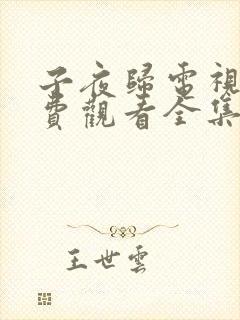 子夜歸電視
費觀看全集
王世雲